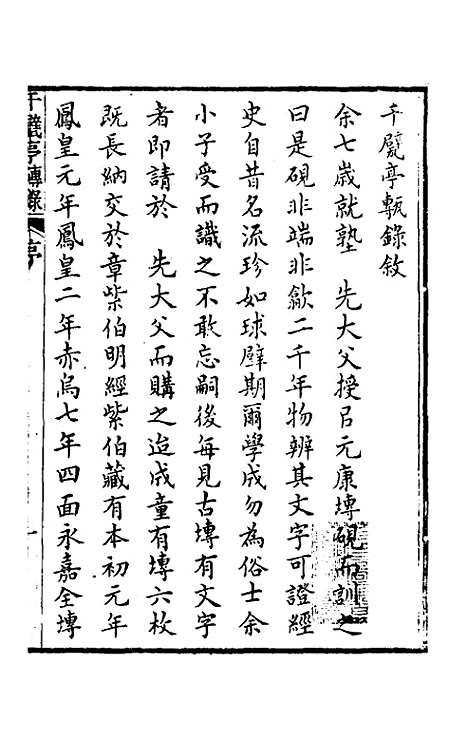 千甓亭甎錄敘
余七歲就塾　先大父授㠯元康塼硯而訓之
曰是硯非端非歙二千年物辨其文字可證經
史自昔名流珍如球璧期爾學成勿為俗士余
小子受而識之不敢忘嗣後每見古塼有文字
者即請於　先大父而購之迨成童有塼六枚
既長納交於章紫伯明經紫伯藏有本初元年
鳳皇元年鳳皇二年赤烏七年四面永嘉全塼
千甓亭塼錄　序　一